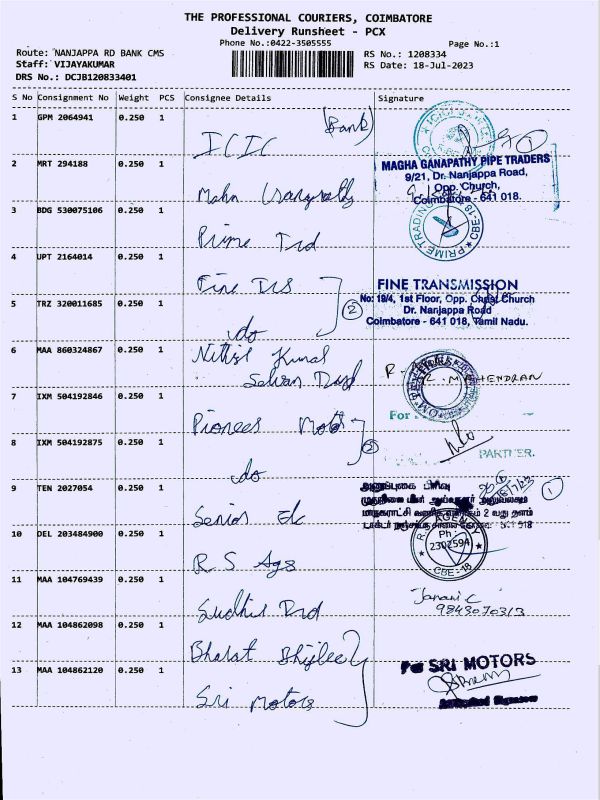 THE PROFESSIONAL COURIERS, COIMBATORE
Delivery Runsheet - PCX
Phone No.:0422-3505555
Page No.:1
Route: NANJAPPA RD BANK CMS
RS No.: 1208334
Staff: VIJAYAKUMAR
RS Date: 18-Jul-2023
DRS No.: DCJB120833401
S No Consignment No Weight PCS Consignee Details Signature
1 GPM 2064941 0.250 1
(Bank)
ICIC
2 MRT 294188 0.250 1
MAGHA GANAPATHY PIPE TRADERS
9/21, Dr. Nanjappa Road,
Opp. Church,
Coimbatore - 641 018.
3 BDG 530075106 0.250 1
Prime Trd
PRIME TRADING CBE-18
4 UPT 2164014 0.250 1
Fine
FINE TRANSMISSION
No: 18/4, 1st Floor, Opp. Christ Church
Dr. Nanjappa Road
Coimbatore - 641 018, Tamil Nadu.
5 TRZ 320011685 0.250 1
2
do
6 MAA 860324867 0.250 1
Nithil Kumar
Selvan
MAHENDRAN
7 IXM 504192846 0.250 1
For
Pioneer
8 IXM 504192875 0.250 1
PARTNER.
do
9 TEN 2027054 0.250 1
1
Senior
10 DEL 203484900 0.250 1
Ph :
2302594
CBE - 18
R S Ags
11 MAA 104769439 0.250 1
Janani C
9843070313
Sudhir
12 MAA 104862098 0.250 1
Bharat Bhijlee
13 MAA 104862120 0.250 1
For SRI MOTORS
Sri Motors
Authorised Signatory